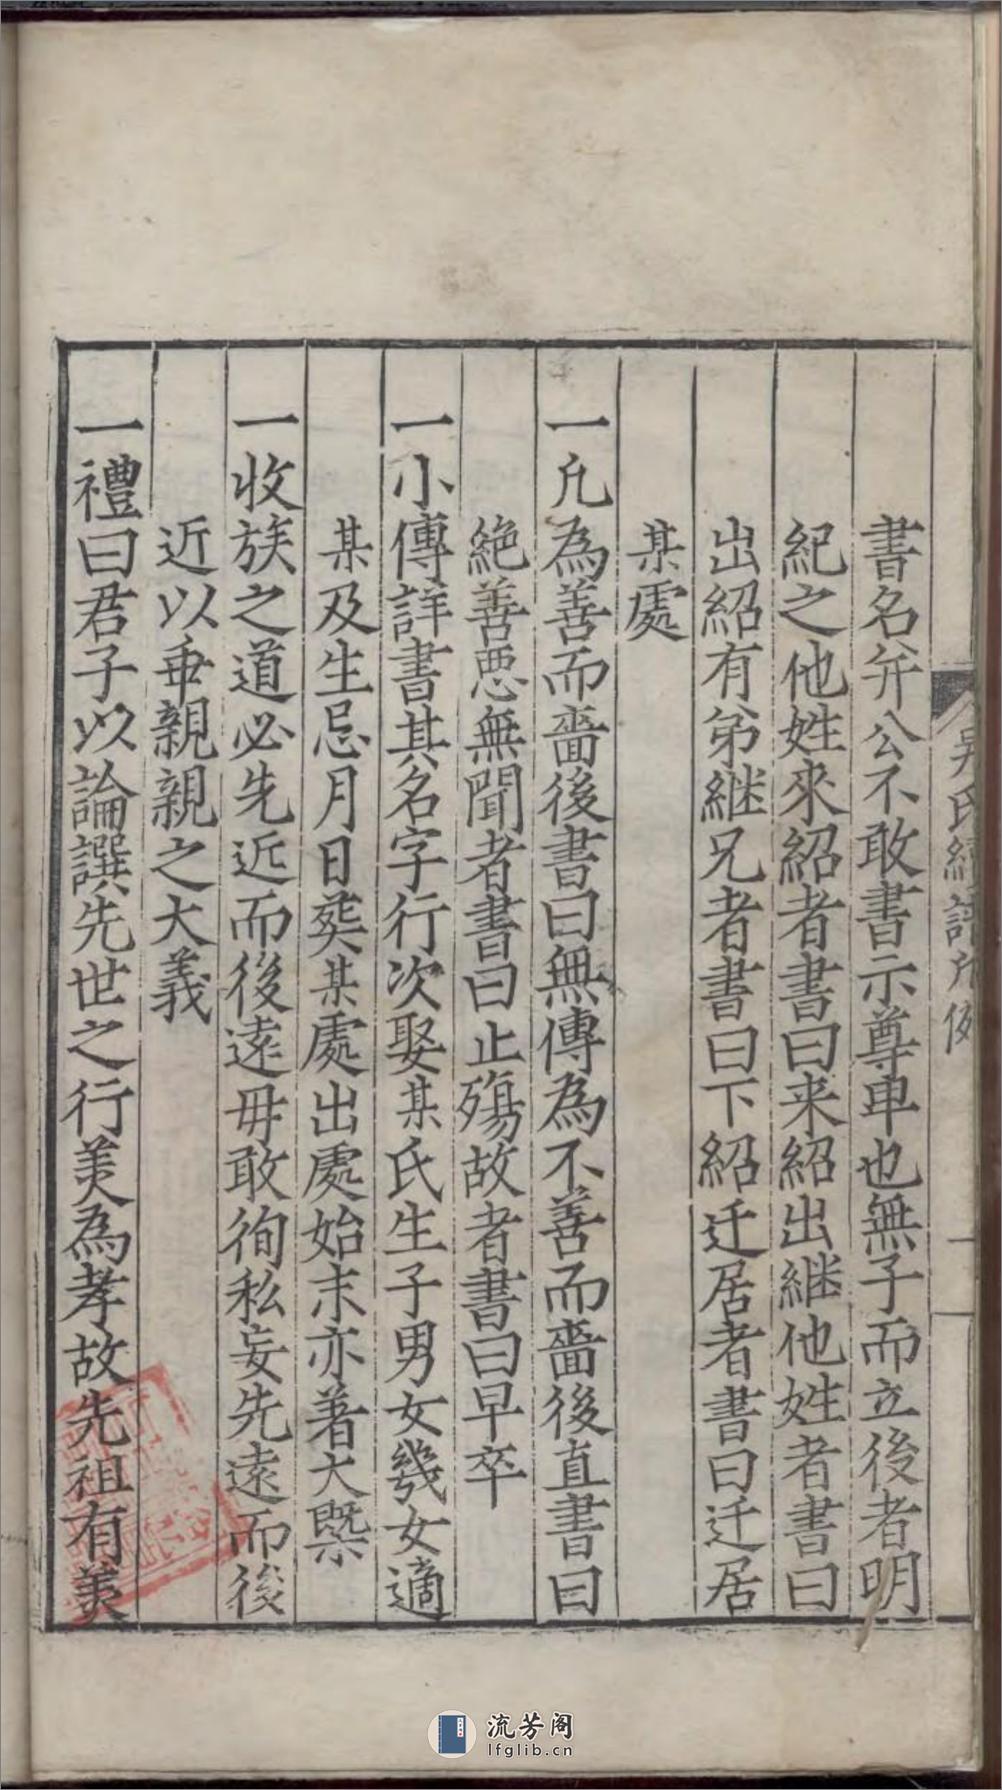 書名弁公不敢書示尊卑也無子而立後者明
紀之他姓來紹者書曰来紹出継他姓者書曰
出紹有弟継兄者書曰下紹迁居者書曰迁居
某處
一凢為善而嗇後書曰無傳為不善而嗇後直書曰
絶善悪無聞者書曰止殤故者書曰早卒
一小傳詳書其名字行次娶某氏生子男女幾女適
某及生忌月日葬某處出處始末亦著大槩
一收族之道必先近而後遠毋敢徇私妄先遠而後
近以乖親親之大義
一禮曰君子以論譔先世之行美為孝故先祖有美
吳氏續譜凢例
一
流芳阁
lfglib.cn